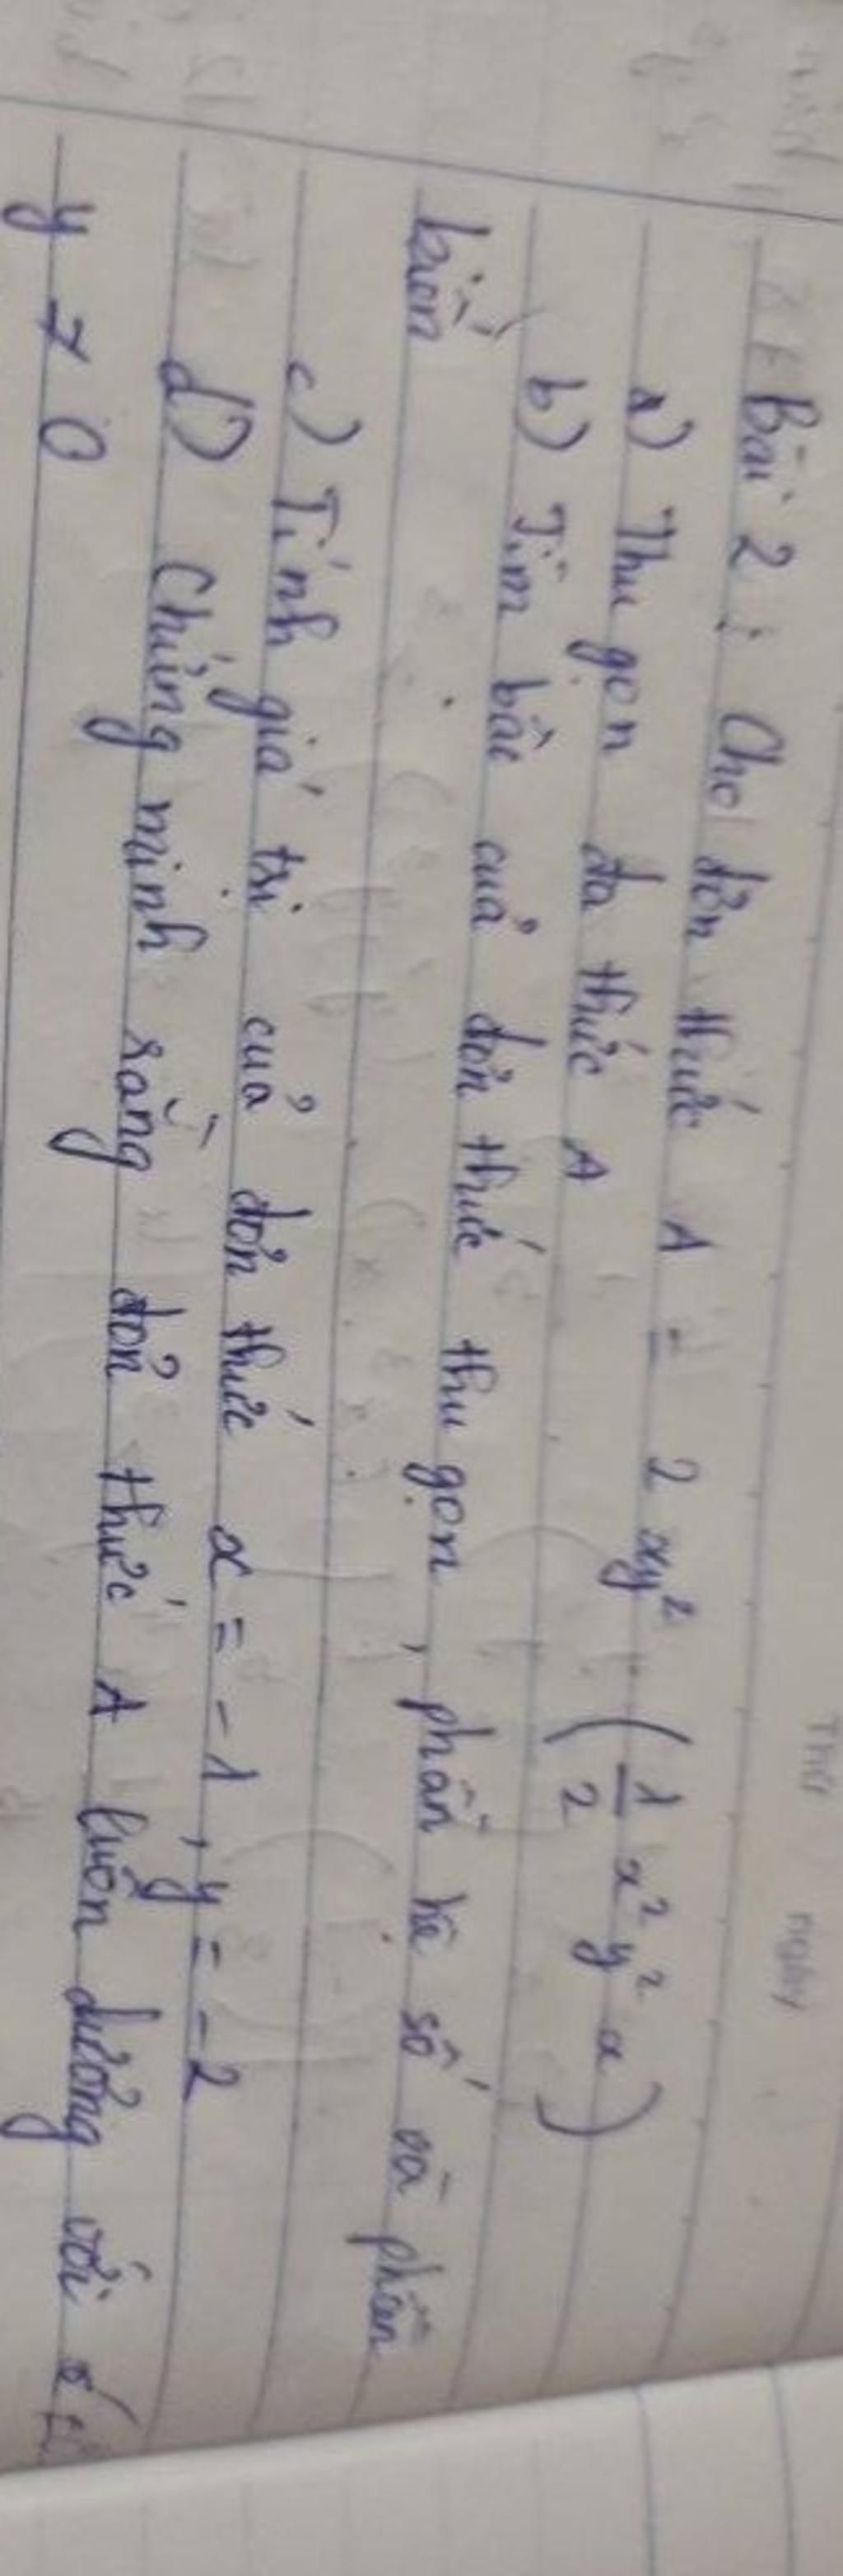 Thứ ngày
Bài 2 : Cho đơn thức A = 2 xy² . ( 1/2 x² y² x )
a) Thu gọn đa thức A
b) Tìm bậc của đơn thức thu gọn , phần hê số và phần
biến
c) Tính giá trị của đơn thức x = -1 , y = -2
d) Chứng minh rằng đơn thức A luôn dương với
y ≠ 0